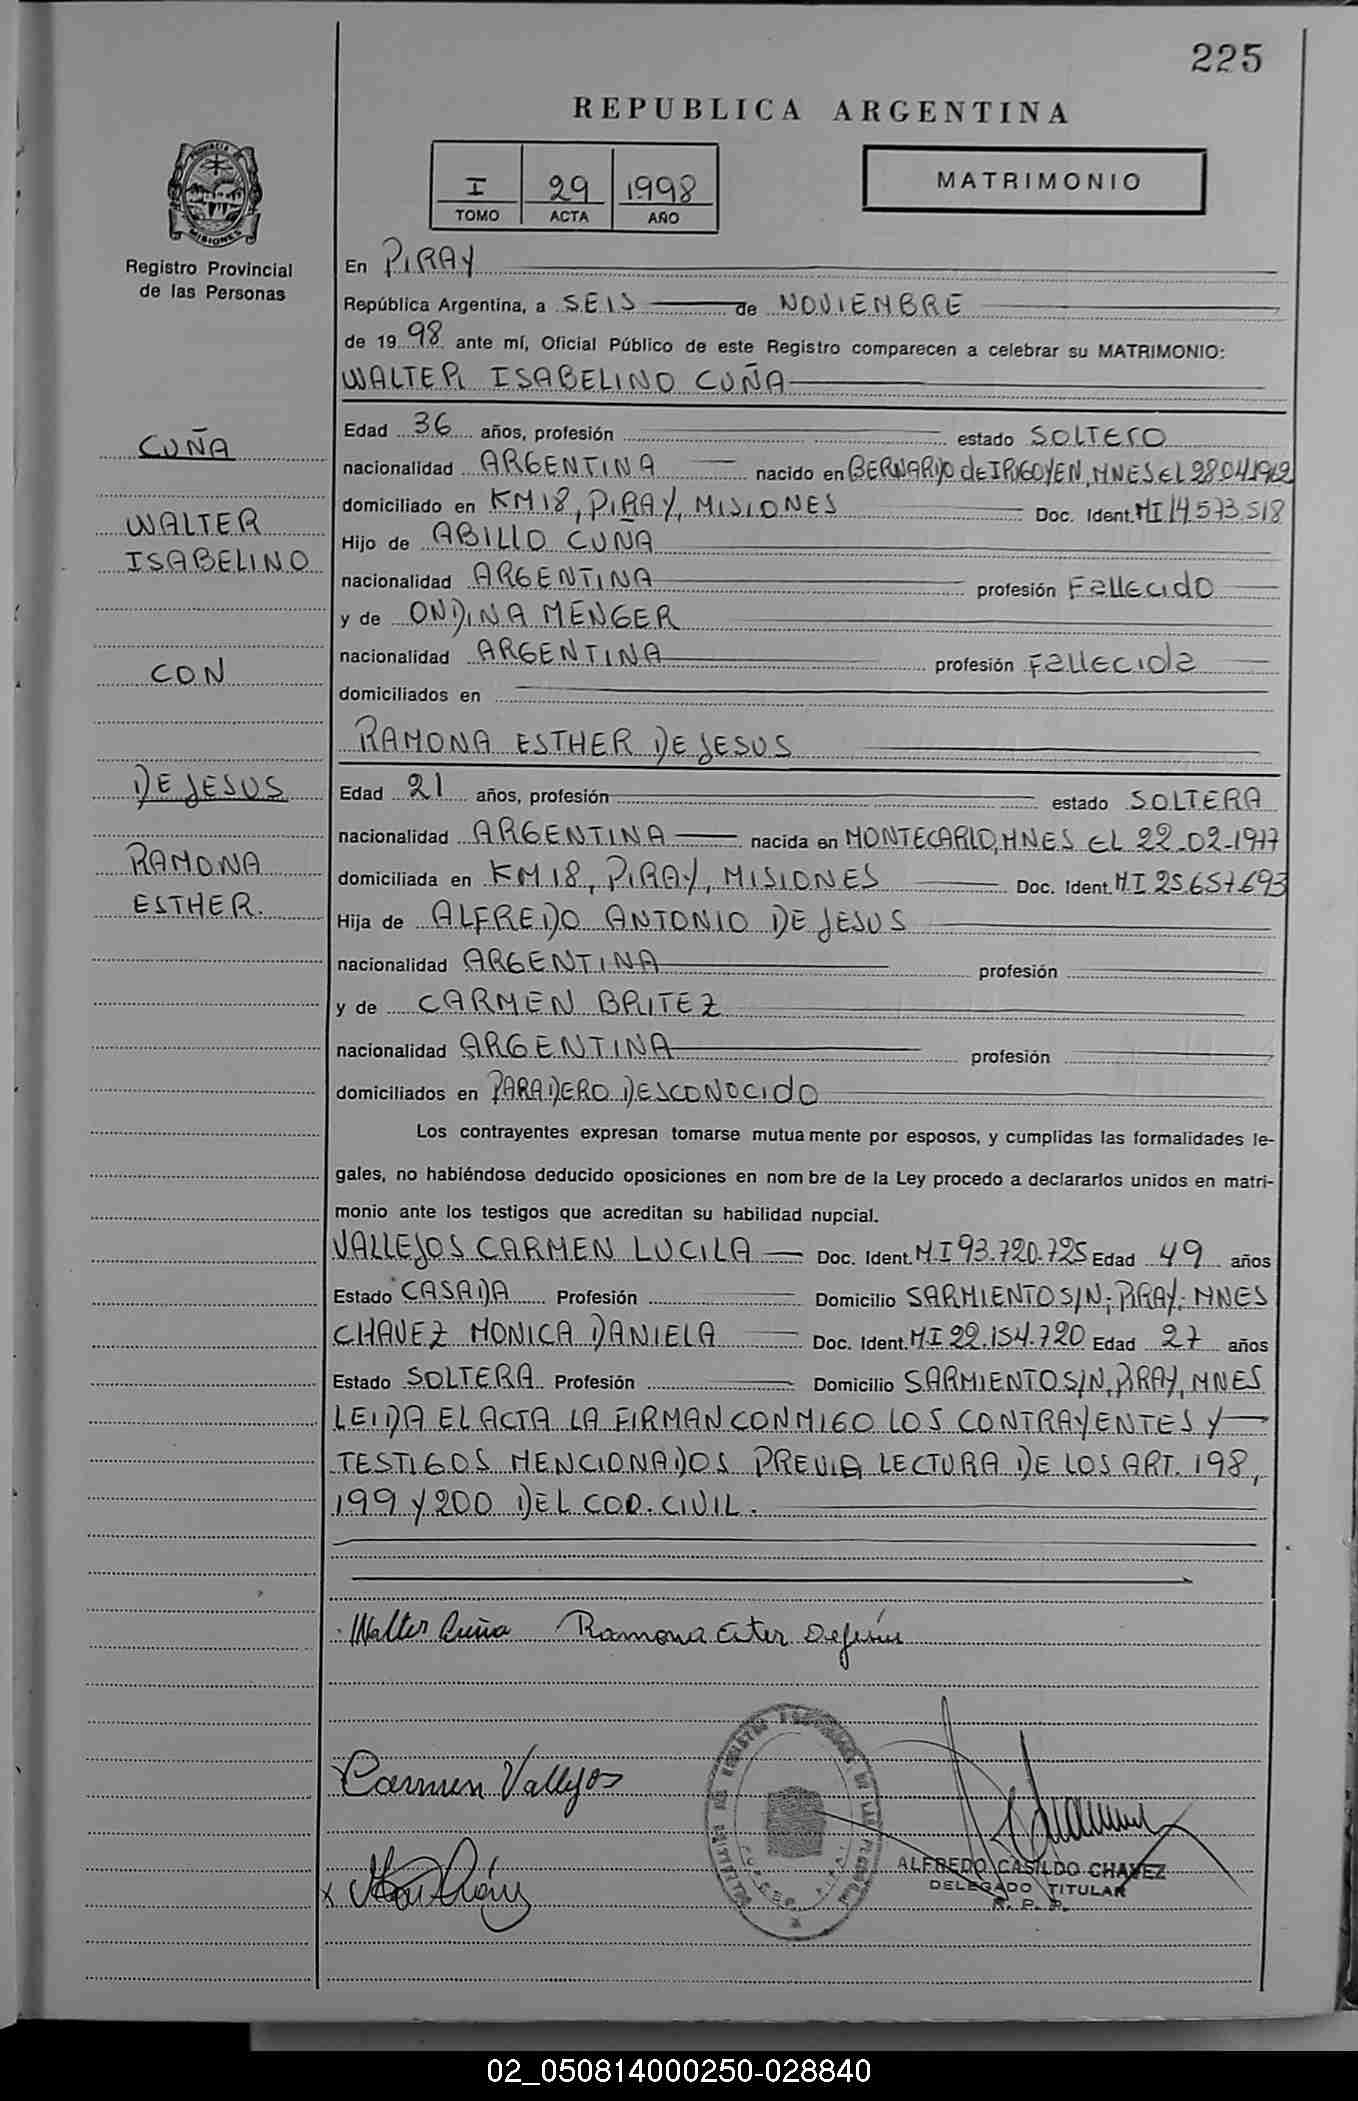 225
REPUBLICA ARGENTINA
I 29 1998
TOMO ACTA AÑO
MATRIMONIO
PROVINCIA DE MISIONES
Registro Provincial
de las Personas
En PIRAY
República Argentina, a SEIS de NOVIEMBRE
de 1998 ante mí, Oficial Público de este Registro comparecen a celebrar su MATRIMONIO:
WALTER ISABELINO CUÑA
CUÑA
WALTER
ISABELINO
CON
DE JESUS
RAMONA
ESTHER.
Edad 36 años, profesión estado SOLTERO
nacionalidad ARGENTINA nacido en BERNARDO de IRIGOYEN, MNES EL 28.04.1962
domiciliado en KM 18, PIRAY, MISIONES Doc. Ident. MI 14.573.518
Hijo de ABILIO CUÑA
nacionalidad ARGENTINA profesión Fallecido
y de ONDINA MENGER
nacionalidad ARGENTINA profesión Fallecida
domiciliados en
RAMONA ESTHER DE JESUS
Edad 21 años, profesión estado SOLTERA
nacionalidad ARGENTINA nacida en MONTECARLO, MNES EL 22-02-1977
domiciliada en KM 18, PIRAY, MISIONES Doc. Ident. MI 25.657.693
Hija de ALFREDO ANTONIO DE JESUS
nacionalidad ARGENTINA profesión
y de CARMEN BRITEZ
nacionalidad ARGENTINA profesión
domiciliados en PARADERO DESCONOCIDO
Los contrayentes expresan tomarse mutuamente por esposos, y cumplidas las formalidades le-
gales, no habiéndose deducido oposiciones en nombre de la Ley procedo a declararlos unidos en matri-
monio ante los testigos que acreditan su habilidad nupcial.
VALLEJOS CARMEN LUCILA Doc. Ident. MI 93.720.725 Edad 49 años
Estado CASADA Profesión Domicilio SARMIENTO S/N, PIRAY, MNES
CHAVEZ MONICA DANIELA Doc. Ident. MI 22.154.720 Edad 27 años
Estado SOLTERA Profesión Domicilio SARMIENTO S/N, PIRAY, MNES
LEIDA EL ACTA LA FIRMAN CONMIGO LOS CONTRAYENTES Y
TESTIGOS MENCIONADOS PREVIA LECTURA DE LOS ART. 198,
199 Y 200 DEL COD. CIVIL.
Walter Cuña Ramona Ester Dejesús
Carmen Vallejos
ALFREDO CASILDO CHAVEZ
DELEGADO TITULAR
R. P. P.
02_050814000250-028840